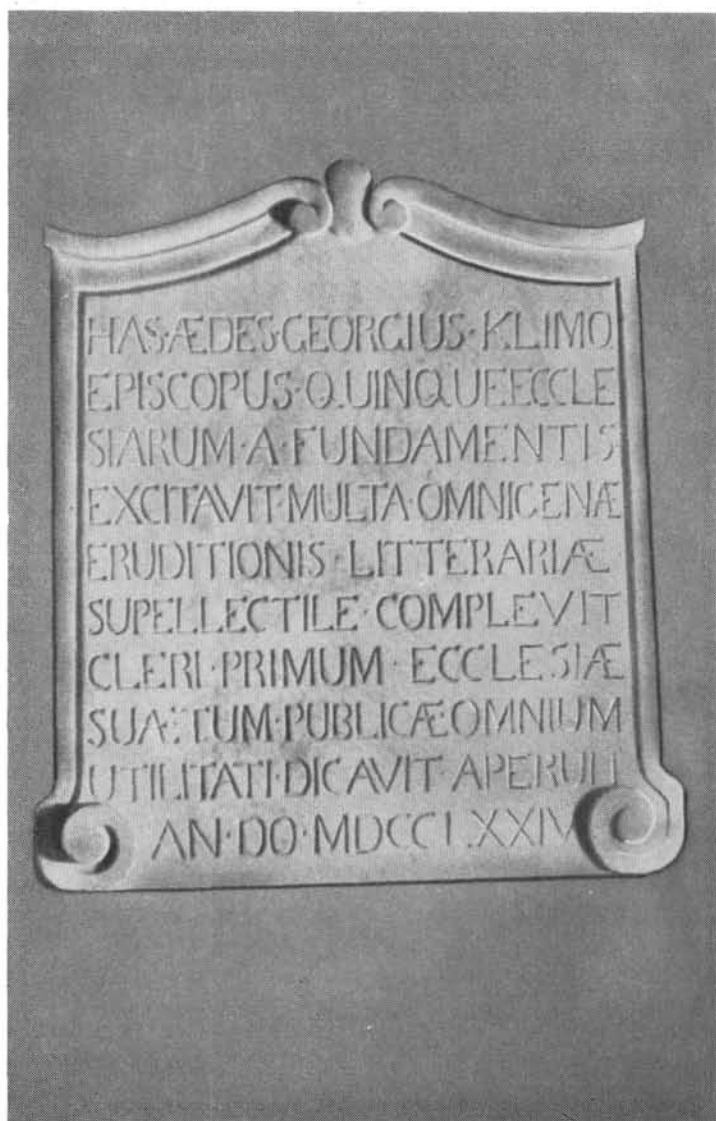 HAS·ÆDES·GEORGIUS·KLIMO
EPISCOPUS·QUINQUEECCLE
SIARUM·A·FUNDAMENTIS
EXCITAVIT·MULTA·OMNIGENÆ
ERUDITIONIS·LITTERARIÆ
SUPELLECTILE·COMPLEVIT
CLERI·PRIMUM·ECCLESIÆ
SUÆ·TUM·PUBLICÆ OMNIUM
UTILITATI·DICAVIT·APERUIT
AN·DO·MDCCLXXIV